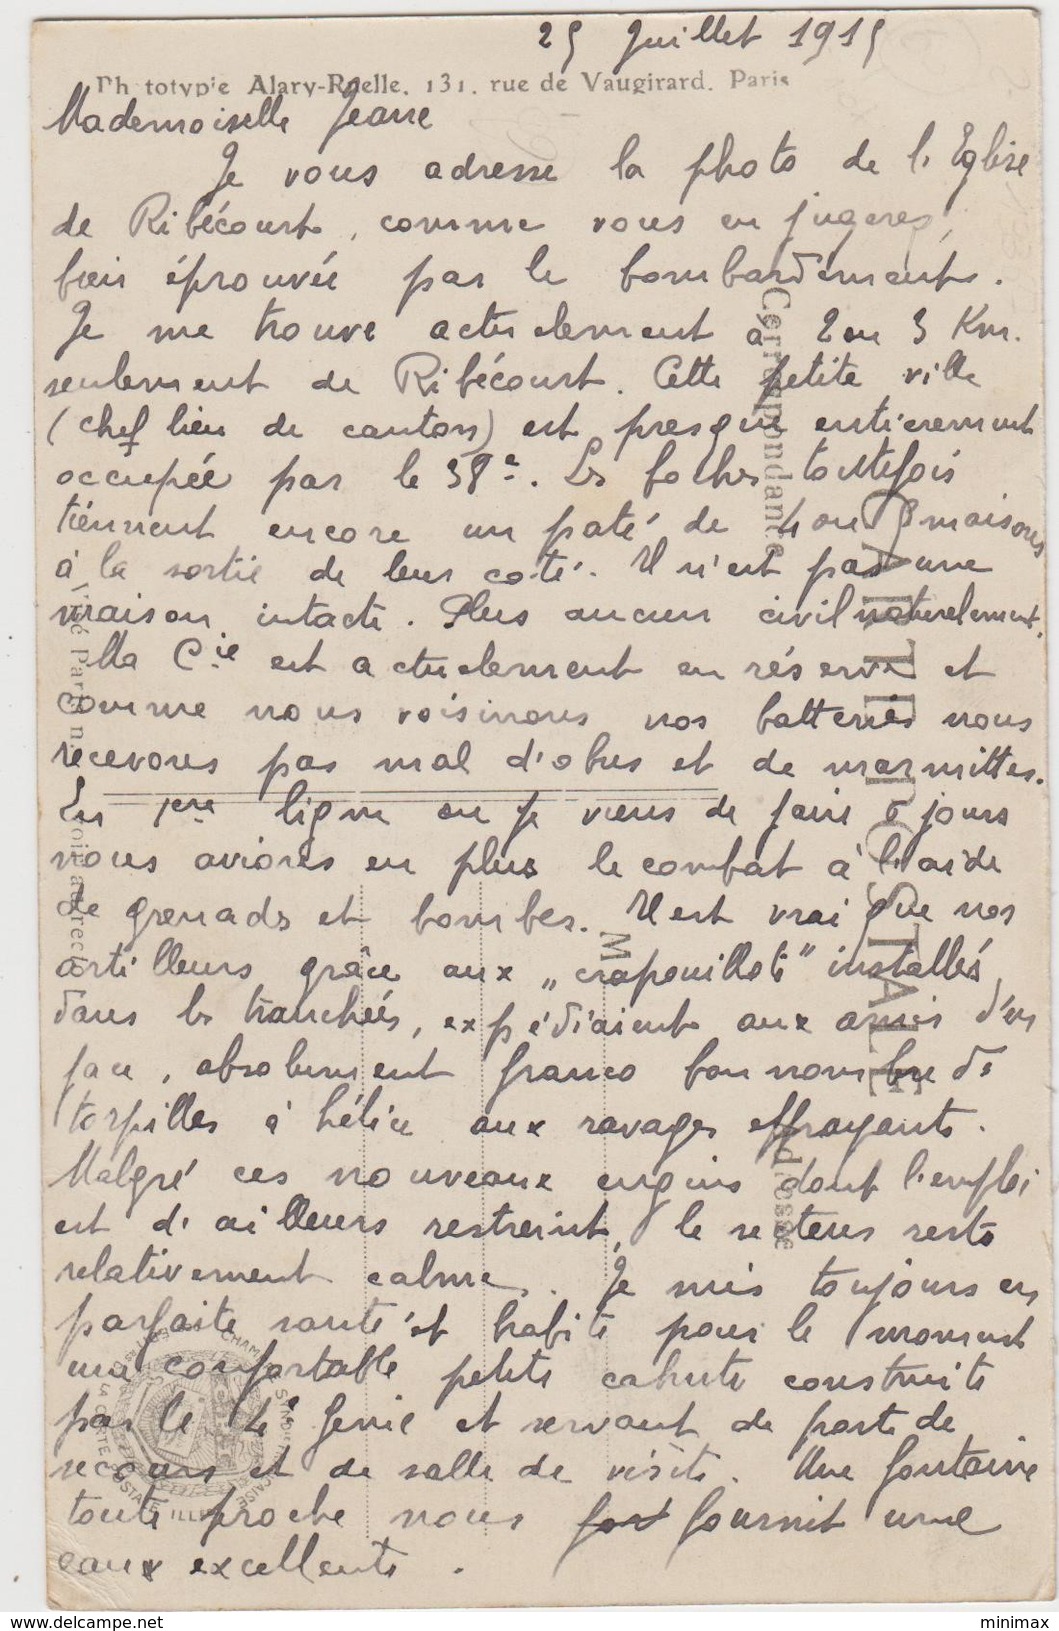 25 Juillet 1915
Phototypie Alary-Ruelle, 131, rue de Vaugirard, Paris
Mademoiselle Jeanne
Je vous adresse la photo de l'Eglise
de Ribécourt, comme vous en jugerez,
bien éprouvée par le bombardement.
Je me trouve actuelement à 2 ou 3 Km.
seulement de Ribécourt. Cette petite ville
(chef lieu de canton) est presque entièrement
occupée par le 38e. Les boches toutefois
tiennent encore un paté de 4 ou 5 maisons
à la sortie de leur coté. Il n'est pas une
maison intacte. Plus aucun civil naturelement.
Ma Cie est actuelement en réserve et
comme nous voisinons nos batteries nous
recevons pas mal d'obus et de marmittes.
En 1ère ligne ou je viens de faire 6 jours
nous avions en plus le combat à l'aide
de grenads et bombes. Il est vrai que nos
artilleurs grâce aux „crapouillots" installés
dans les tranchées, expédiaient aux amis d'en
face, absolument franco bon nombre de
torpilles à hélice aux ravages effrayants.
Malgré ces nouveaux engins dont l'emploi
est d'ailleurs restreint, le secteur reste
relativement calme. Je suis toujours en
parfaite santé et habite pour le moment
une confortable petite cahute construite
par le 4e Génie et servant de poste de
secours et de salle de visite. Une fontaine
toute proche nous fournit une
eaux excellente.
CARTE POSTALE
Correspondance
Adresse
M
www.delcampe.net
minimax